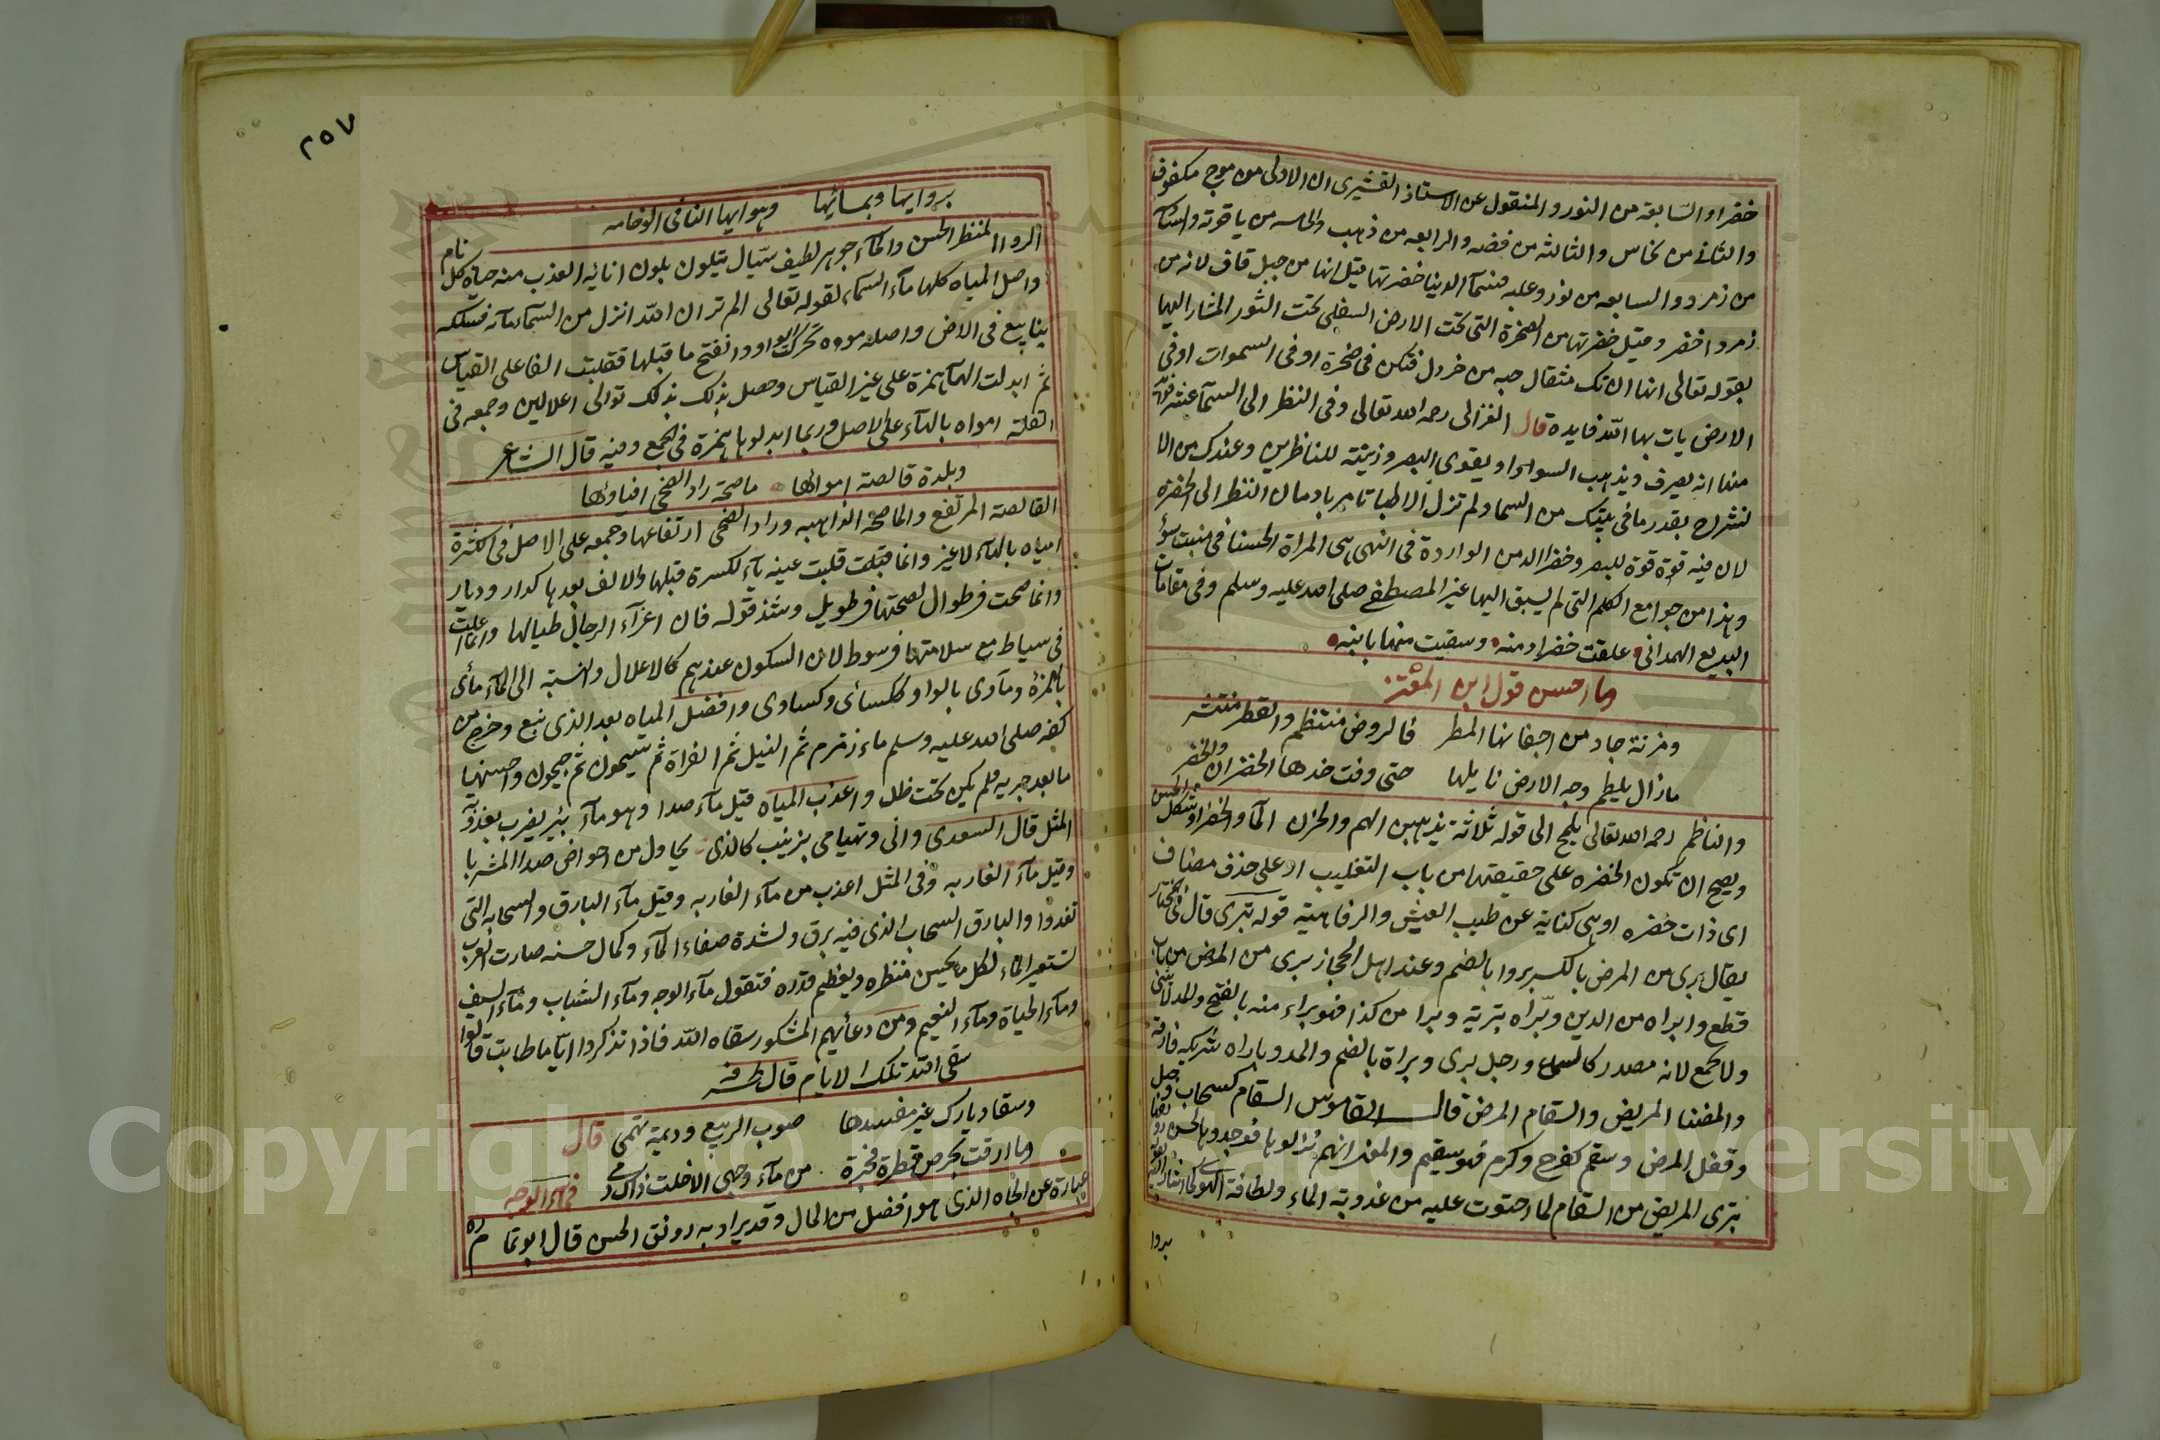 خضرا والسابعة من النور والمنقول عن الاستاذ القشيرى ان الاولى من موج مكفوف
والثانى من نحاس والثالثه من فضه والرابعه من ذهب والخامسه من ياقوته والسادسة
من زمرد والسابعه من نور وعليه فسمآ الدنيا خضرتها قيل انها من جبل قاف لانه من
زمرد اخضر وقيل خضرتها من الصخرة التى تحت الارض السفلى تحت الثور المشار اليها
بقوله تعالى انها ان تك مثقال حبه من خردل فتكن فى صخرة او فى السموات او فى
الارض يات بها الله فايده قال الغزالى رحمه الله تعالى وفى النظر الى السمآ عشر فوايد
منها انه يصرف ويذهب السواد ويقوى البصر وزينته للناظرين وعندك من الا
نشراح بقدر ما فى بيتك من السما ولم تزل الاطبا تامر بادمان النظر الى الخضرة
لان فيه قوة قوة للبصر وخضرا الدمن الواردة فى النهى هى المراة الحسنا فى منبت سؤ
وهذا من جوامع الكلم التى لم يسبق اليها غير المصطفى صلى الله عليه وسلم وفى مقامات
البديع الهمدانى علقت خضراء دمنه وسقيت منها بابنه
وما احسن قول ابن المعتز
ومزنة جاد من اجفانها المطر فالروض منتظم والقطر منتثر
مازال يلطم وجه الارض نايلها حتى وفت خدها الخضران والخضر
والناظم رحمه الله تعالى يلمح الى قوله ثلاثة يذهبن الهم والحزن المآ والخضرا والشكل الحسن
ويصح ان تكون الخضره على حقيقتها من باب التغليب او على حذف مضاف
اى ذات خضره او هى كناية عن طيب العيش والرفاهية قوله تبرى قال فى المختار
يقال برى من المرض بالكسر بروا بالضم وعند اهل الحجاز برى من المرض من باب
قطع وابراه من الدين وبرّاه تبرية وبرا من كذا فهو براء منه بالفتح والمد لا يثنى
ولا يجمع لانه مصدر كالسماع ورجل برى وبراة بالضم والمد وباراه شريكه فارقه
والمضنا المريض والسقام المرض قال القاموس السقام كسحاب وجبل
وقفل المرض وسقم كفرح وكرم فهو سقيم
تبرى المريض من السقام لما احتوت عليه من عذوبة الماء ولطافة الهوى
بروا
٢٥٧
بروايها وبمائها وهوايها النافى الوخامه
الروا المنظر الحسن والمآء جوهر لطيف سيّال يتلون بلون انائه العذب منه حياة كل نام
واصل المياه كلها مآء السماء لقوله تعالى الم تر ان الله انزل من السمآء مآء فسلكه
ينابيع فى الارض واصله موه تحركت الواو وانفتح ما قبلها فقلبت الفا على القياس
ثم ابدلت الهآء همزة على غير القياس وحصل بذلك بذلك توالى اعلالين وجمعه فى
القلة امواه بالهآء على الاصل وربما ابدلوها همزة فى الجمع ومنه قال الشاعر
وبلدة قالصة امواها ماصحة راد الضحى افياوها
القالصة المرتفع والماصحة الذاهبه وراد الضحى ارتفاعها وجمعه على الاصل فى الكثرة
امياه بالهآء لا غير وانما قبلت قلبت عينه يآء لكسرة قبلها والالف بعدها كدار وديار
وانما صحت فى طوال لصحتها فى طويل وشذ قوله فان اعزآء الرجال طيالها وانما اعلت
فى سياط مع سلامتها فى سوط لان السكون عندهم كالاعلال والنسبة الى المآء مآئى
بالهمزة ومآوى بالواو ككسائى وكساوى وافضل المياه بعد الذى نبع وخرج من
كفه صلى الله عليه وسلم ماء زمزم ثم النيل ثم الفراة ثم سيحون ثم جيحون واحسنها
ما بعد جريه فلم يكن تحت ظل واعذب المياه قيل مآء صدا وهو مآء بئر يضرب بعذوبته
المثل قال السعدى وانى وتهيامى بزينب كالذى يحاول من احواض صدا المشربا
وقيل مآء الغاربه وفى المثل اعذب من مآء الغاربه وقيل مآء البارق والسحابه التى
تغدوا والبارق السحاب الذى فيه برق ولشدة صفاء المآء وكمال حسنه صارت العرب
تستعير الماء لكل ما يحسن منظره ويعظم قدره فتقول مآء الوجه ومآء الشباب ومآء السيف
ومآء الحياة ومآء النعيم ومن دعائهم المشكور سقاه الله فاذا تذكروا ايآما طابت قالوا
سقى الله تلك الايام قال طرفه
وسقا ديارك غير مفسدها صوب الربيع وديمة تهمى قال
وما ارقت بحرص قطرة فجرة من مآء وجهى الا خلت ذاك دمى فمآء الوجه
عبارة عن الجاه الذى هو افضل من المال وقد يراد به رونق الحسن قال ابو تمام